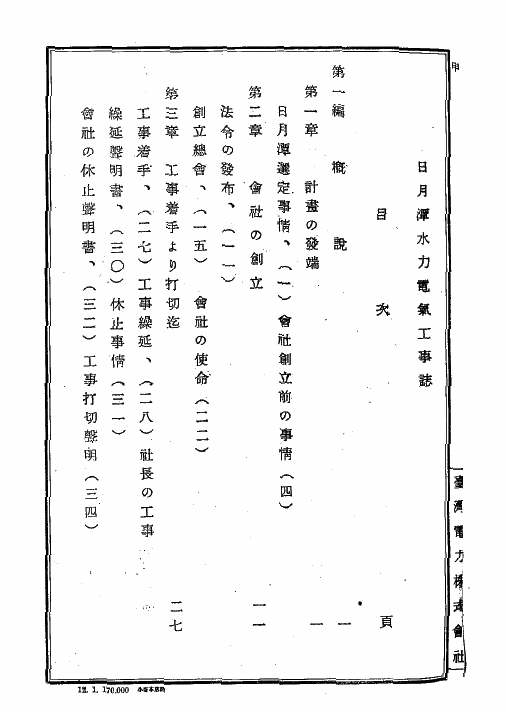 甲
日月潭水力電氣工事誌
目次
頁
第一編 概說 一
第一章 計畫の發端 一
日月潭選定事情、(一) 會社創立前の事情(四)
第二章 會社の創立 一一
法令の發布、(一一)
創立總會、(一五) 會社の使命(二二)
第三章 工事着手より打切迄 二七
工事着手、(二七) 工事繰延、(二八) 社長の工事
繰延聲明書、(三〇) 休止事情(三一)
會社の休止聲明書、(三二) 工事打切聲明(三四)
臺灣電力株式會社
12. 1. 170,000